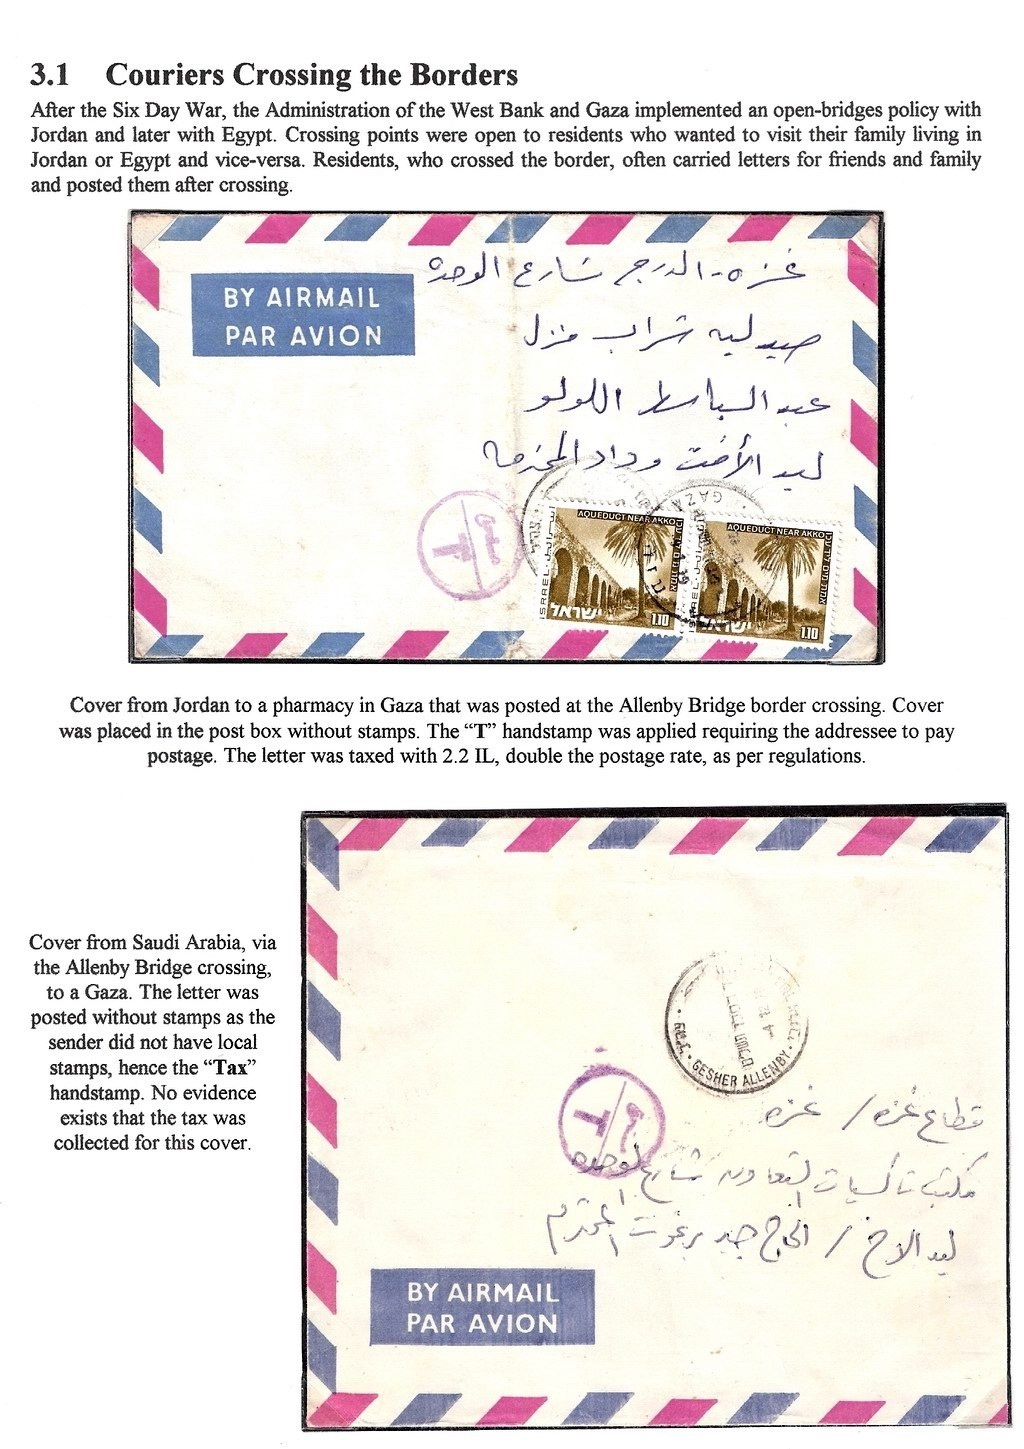 3.1 Couriers Crossing the Borders
After the Six Day War, the Administration of the West Bank and Gaza implemented an open-bridges policy with
Jordan and later with Egypt. Crossing points were open to residents who wanted to visit their family living in
Jordan or Egypt and vice-versa. Residents, who crossed the border, often carried letters for friends and family
and posted them after crossing.
BY AIRMAIL
PAR AVION
غزه - الدرج شارع الوحده
صيدليه شراب منزل
عبد الباسط اللولو
ليد الأخت وداد المحترمه
T
GAZA
AQUEDUCT NEAR AKKO
ISRAEL
ישראל
1.10
AQUEDUCT NEAR AKKO
ISRAEL
ישראל
1.10
Cover from Jordan to a pharmacy in Gaza that was posted at the Allenby Bridge border crossing. Cover
was placed in the post box without stamps. The “T” handstamp was applied requiring the addressee to pay
postage. The letter was taxed with 2.2 IL, double the postage rate, as per regulations.
Cover from Saudi Arabia, via
the Allenby Bridge crossing,
to a Gaza. The letter was
posted without stamps as the
sender did not have local
stamps, hence the “Tax”
handstamp. No evidence
exists that the tax was
collected for this cover.
GESHER ALLENBY
T
قطاع غزه / غزه
مكتب تاكسيات التعاون شارع الوحده
ليد الاخ / الحاج برغوت المحترم
BY AIRMAIL
PAR AVION